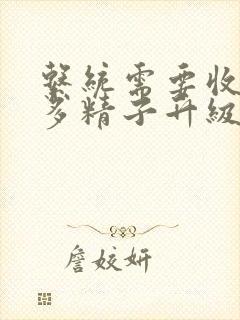 系統需要收
多精子升級
詹姣妍